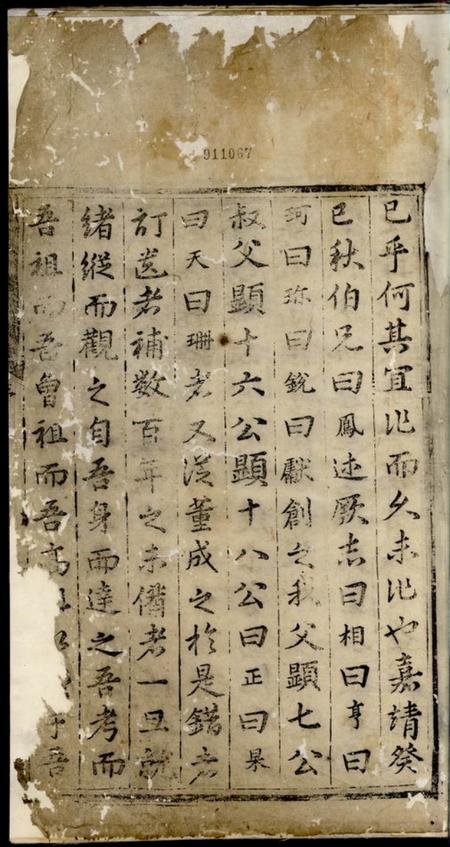 911067
已乎何其宜作而久未作也嘉靖癸
巳秋伯兄曰鳳述厥志曰相曰亨曰
珂曰珎曰銳曰獻創之我父顯七公
叔父顯十六公顯十八公曰正曰杲
曰天曰珊者又從董成之於是錯者
訂遺者補数百年之未備者一旦就
緒縱而觀之自吾身而達之吾考而
吾祖而吾曾祖而吾高 吾